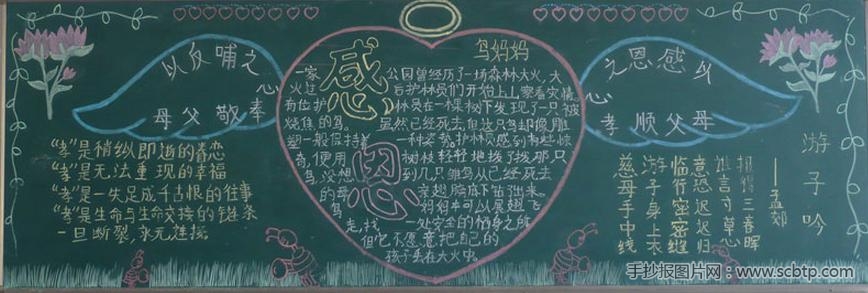 以反哺之
心
奉敬父母
之恩感以
心
孝顺父母
感恩
鸟妈妈
一家公园曾经历了一场森林大火,大
火过后护林员们开始上山察看灾情,
有位护林员在一棵树下发现了一只被
烧焦的鸟。虽然已经死去,但这只鸟却像雕
塑一般保持着一种姿势,护林员感到有些惊
奇,便用树枝轻轻地拨了拨那只
鸟,没想到几只雏鸟从已经死去
的母亲翅膀底下钻出来。
鸟妈妈本可以展翅飞
走,找一处安全的栖身之所
但它不愿意把自己的
孩子丢在大火中。
“孝”是稍纵即逝的眷恋
“孝”是无法重现的幸福
“孝”是一失足成千古恨的往事
“孝”是生命与生命交接的链条
一旦断裂,永无连接
游子吟
——孟郊
慈母手中线
游子身上衣
临行密密缝
意恐迟迟归
谁言寸草心
报得三春晖
手抄报图片网:www.scbtp.com